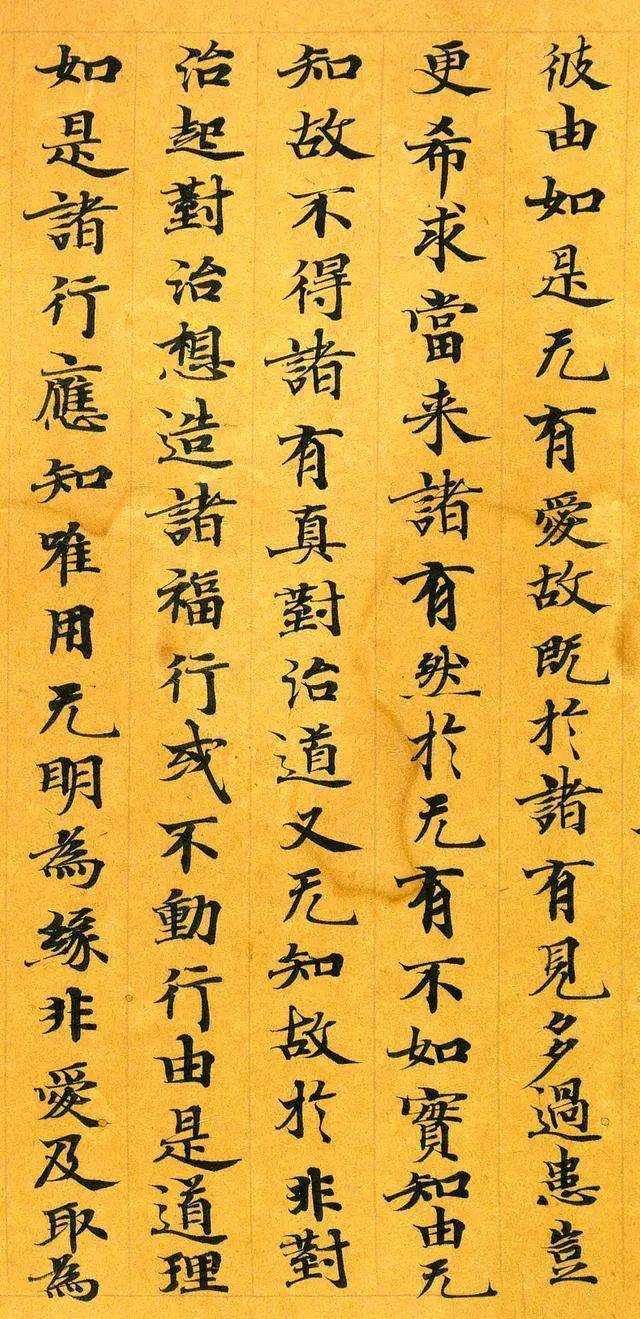 彼由如是无有愛故既於諸有見多過患豈
更希求當来諸有然於无有不如實知由无
知故不得諸有真對治道又无知故於非對
治起對治想造諸福行或不動行由是道理
如是諸行應知唯用无明為緣非愛及取為